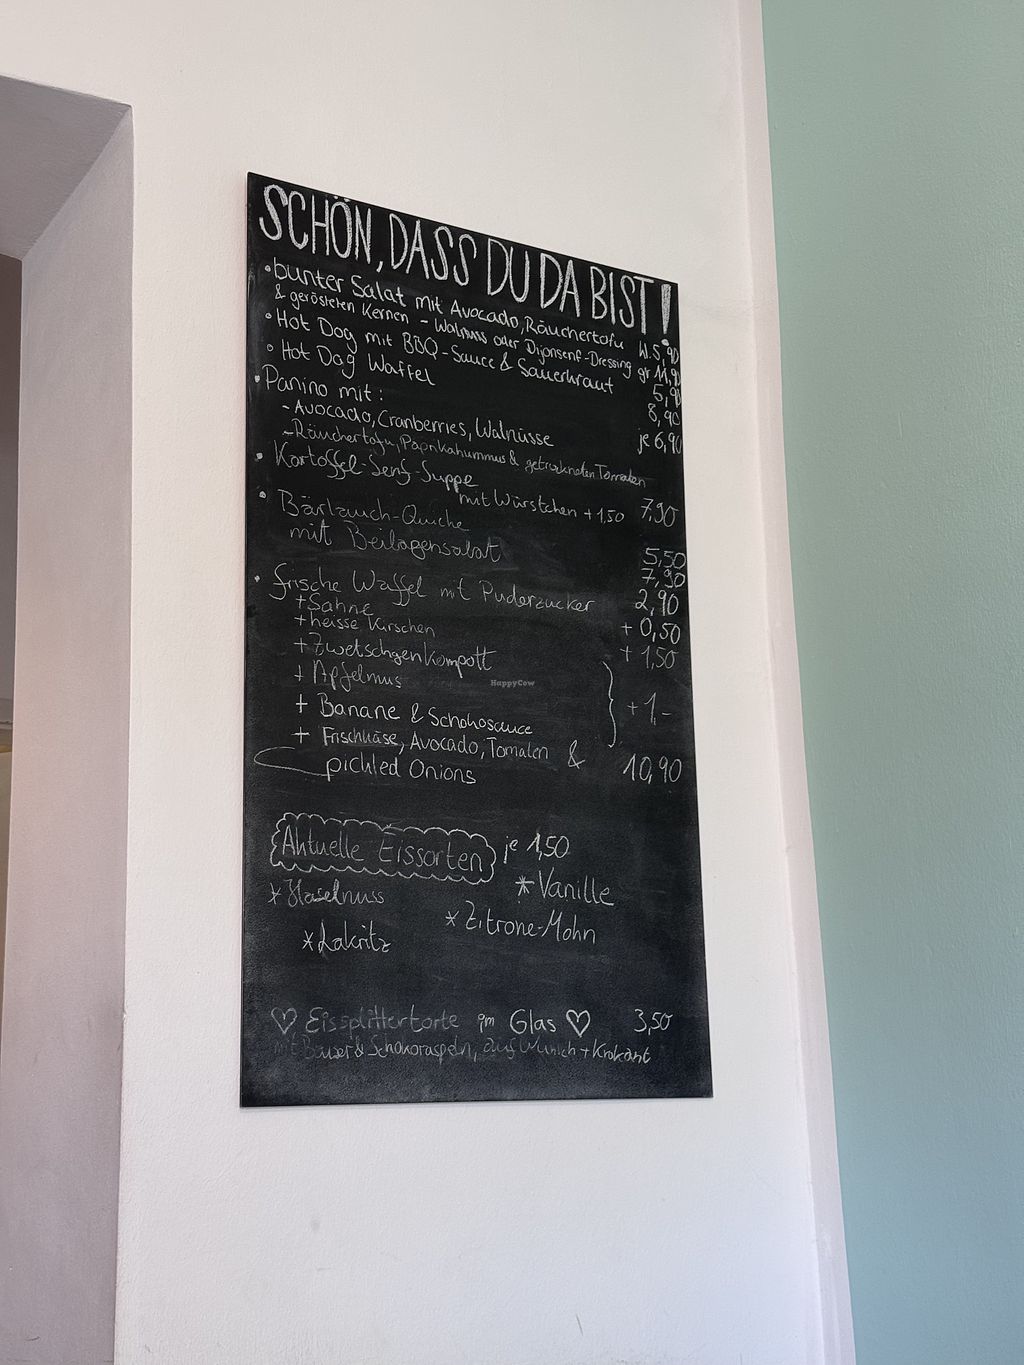 SCHÖN, DASS DU DA BIST!
• bunter Salat mit Avocado, Räuchertofu
& gerösteten Kernen - Walnuss oder Dijonsenf-Dressing gr 11,90
• Hot Dog mit BBQ-Sauce & Sauerkraut 5,90
• Hot Dog Waffel 8,90
• Panino mit: je 6,90
- Avocado, Cranberries, Walnüsse
- Räuchertofu, Paprikahummus & getrockneten Tomaten
• Kartoffel-Senf-Suppe 7,90
mit Würstchen + 1,50
• Bärlauch-Quiche 5,50
mit Beilagensalat 7,90
• frische Waffel mit Puderzucker 2,90
+ Sahne + 0,50
+ heisse Kirschen + 1,50
+ Zwetschgenkompott
+ Apfelmus + 1,-
+ Banane & Schokosauce
+ Frischkäse, Avocado, Tomaten &
pickled Onions 10,90
HappyCow
Aktuelle Eissorten je 1,50
* Haselnuss * Vanille
* Lakritz * Zitrone-Mohn
♡ Eissplittertorte im Glas ♡ 3,50
mit Baiser & Schokoraspeln, auf Wunsch + Krokant